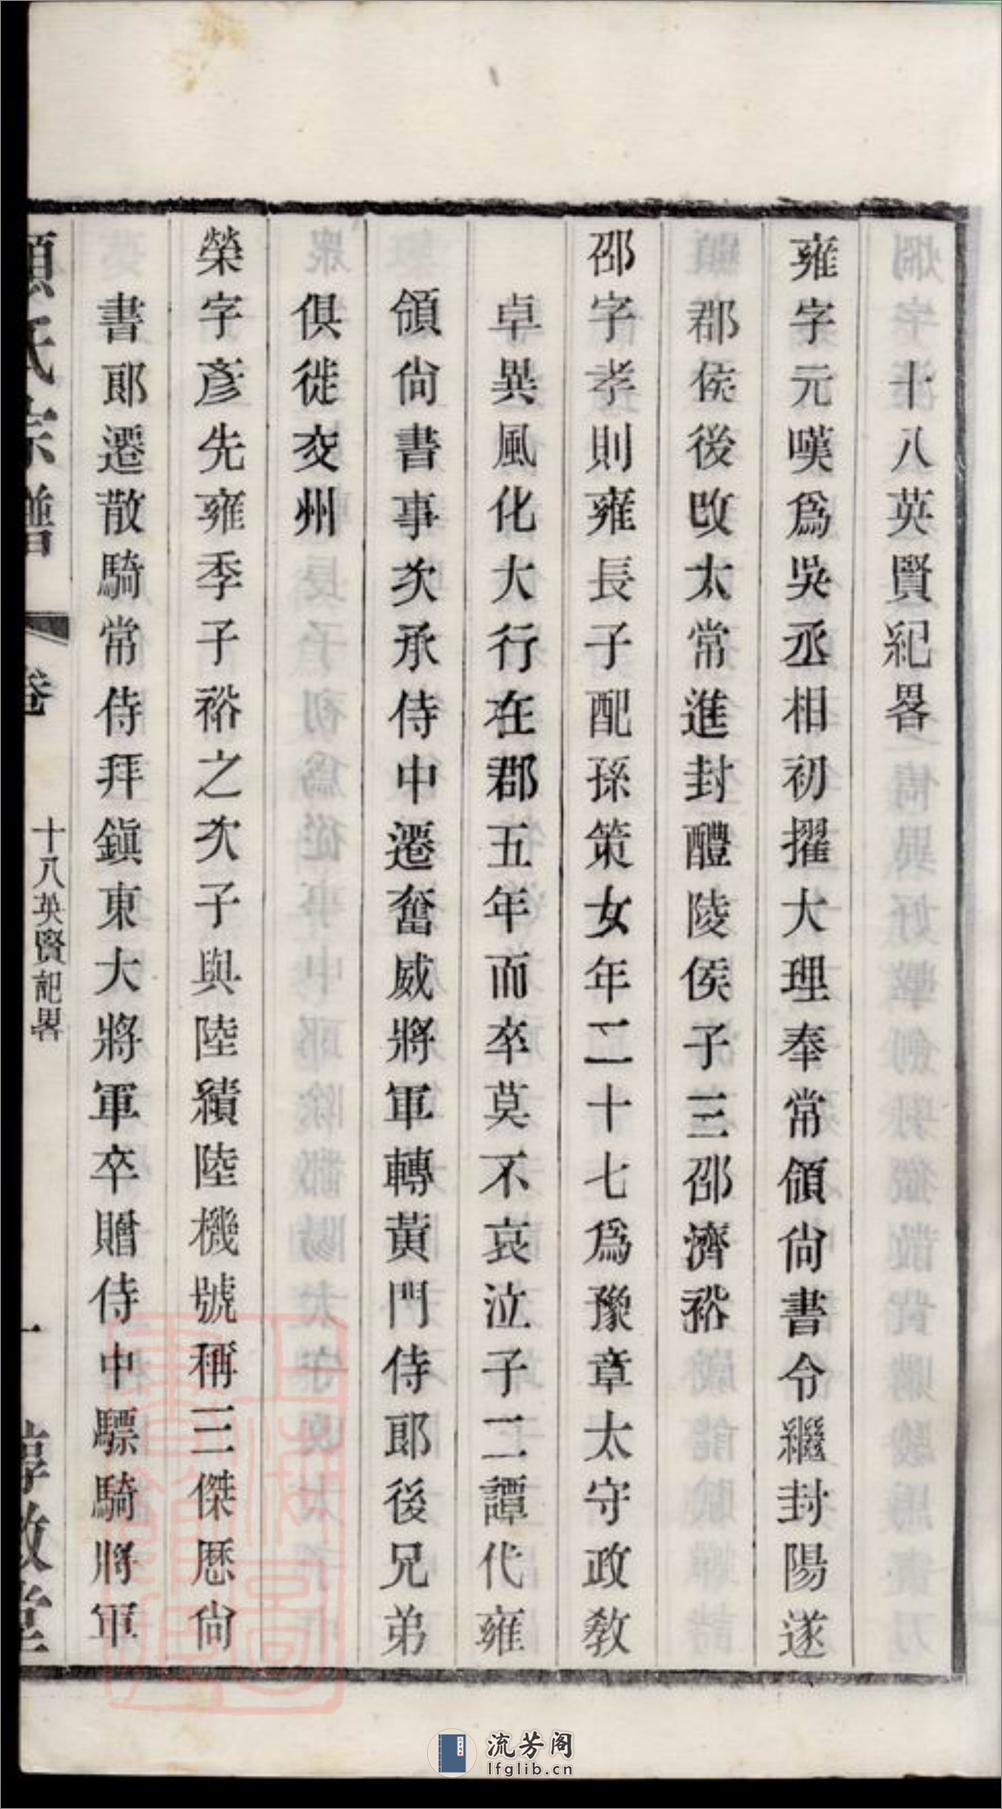 十八英賢紀畧
雍字元嘆爲吳丞相初擢大理奉常領尙書令繼封陽遂
郡侯後改太常進封醴陵侯子三邵濟裕
邵字孝則雍長子配孫策女年二十七爲豫章太守政敎
卓異風化大行在郡五年而卒莫不哀泣子二譚代雍
領尙書事次承侍中遷奮威將軍轉黃門侍郞後兄弟
俱徙交州
榮字彥先雍季子裕之次子與陸績陸機號稱三傑歷尙
書郞遷散騎常侍拜鎭東大將軍卒贈侍中驃騎將軍
顧氏宗譜
卷
十八英賢記畧
一
敦堂
流芳阁
lfglib.cn